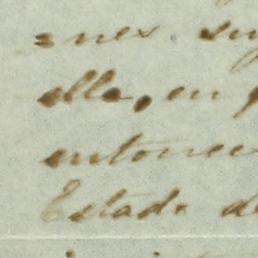 = nes
ella, en
entonces
Estado de